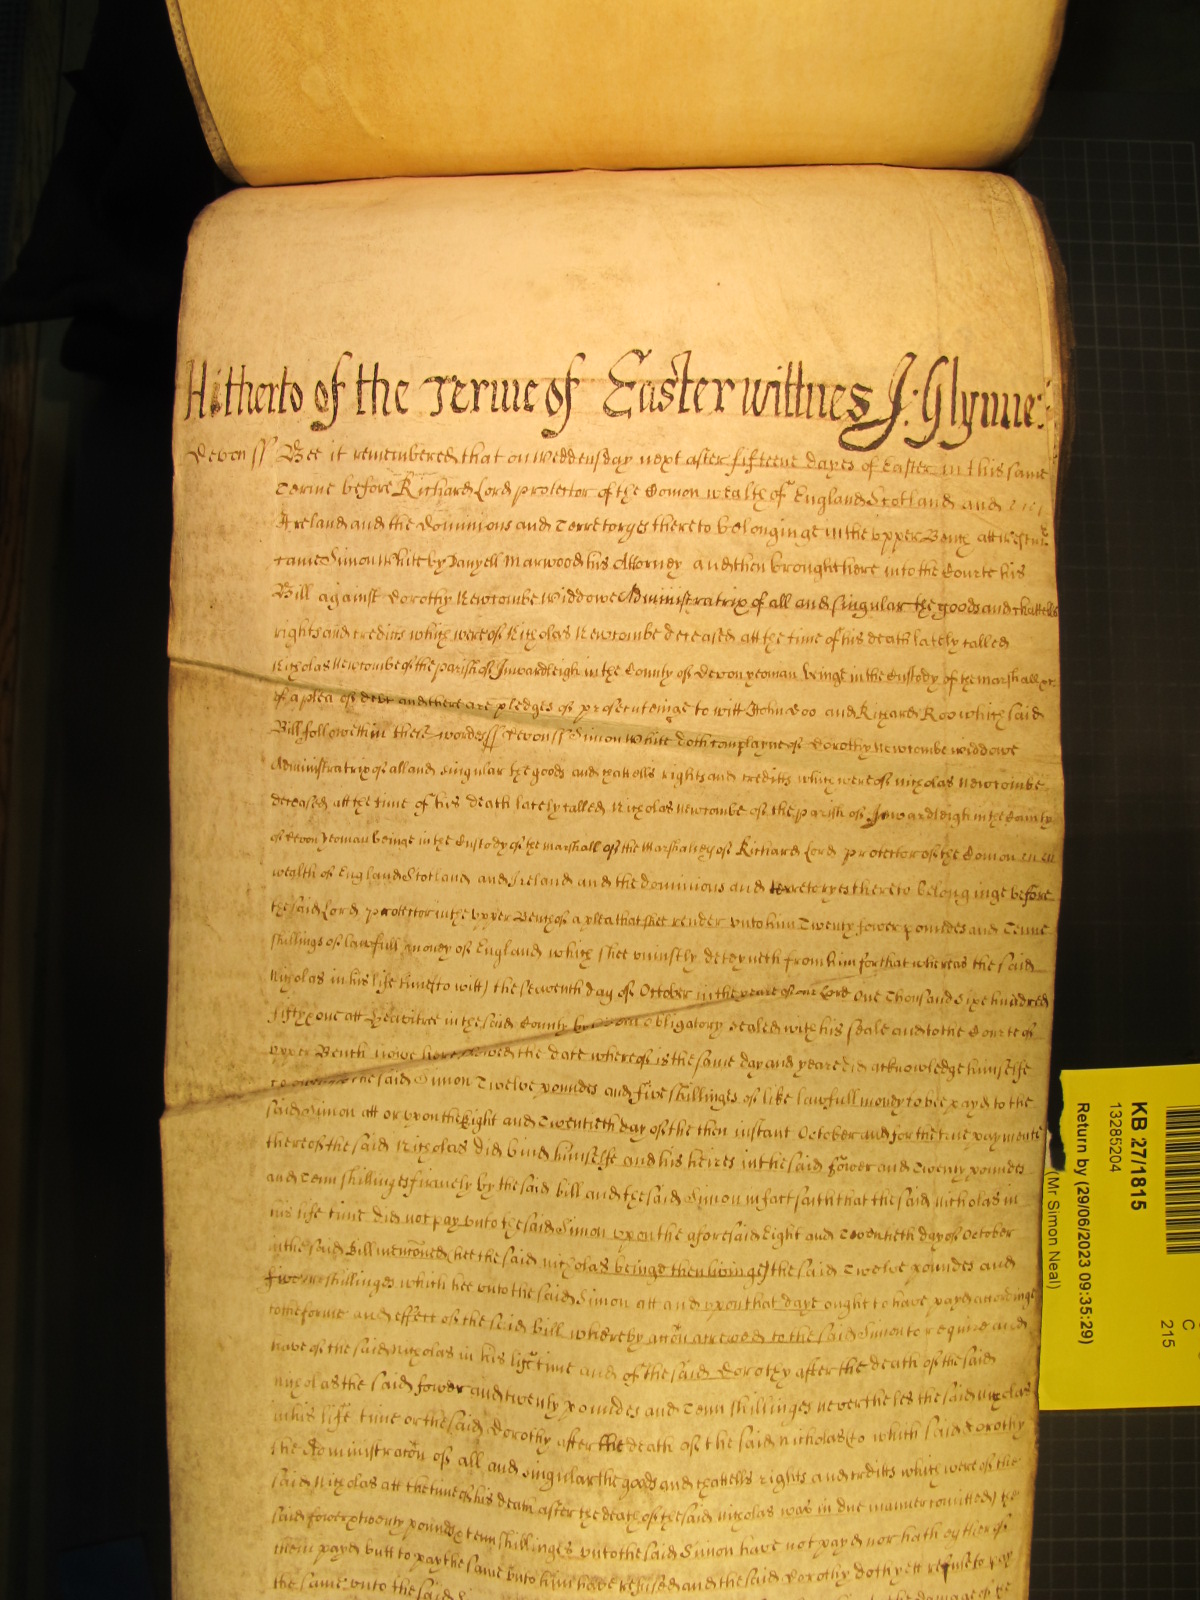 Hitherto of the Terme of Easter wittnes J: Glynne:
Devon ss Bee it remembered that on Weddensday next after fifteene dayes of Easter in this same
Terme before Richard Lord protector of the Comon wealth of England Scotland and
Ireland and the Dominions and Terretoryes thereto belonginge in the upper Bench att Westmr
came Simon White by Danyell Marwood his Attorney and then brought here into the Courte his
Bill against Dorothy Newcombe widdowe Administratrix of all and singular the goods and chattells
rights and creditts which were of Nicholas Newcombe deceased att the time of his death lately called
Nicholas Newcombe of the parish of Inwardleigh in the County of Devon yeoman beinge in the Custody of the marshall &c
of a plea of debt and there are pledges of prosecuteinge to witt John Doo and Richard Roo which said
Bill followeth in these wordes ss Devon ss Simon White doth complayne of Dorothy Newcombe widdowe
Administratrix of all and singular the goods and chattells rights and creditts which were of Nicholas Newcombe
deceased att the time of his death lately called Nicholas Newcombe of the parish of Inwardleigh in the County
of Devon yeoman beinge in the Custody of the marshall of the Marshalsey of Richard Lord protector of the Comon
wealth of England Scotland and Ireland and the dominions and terretoryes thereto belonginge before
the said Lord protector in the upper Bench of a plea that shee render unto him Twenty fower poundes and Tenne
shillings of lawfull money of England which shee uniustly deteyneth from him for that whereas the said
Nicholas in his life time (to witt) the seaventh day of October in the yeare of our Lord One Thousand Sixe hundred
fifty one att Heavitree in the said County by his bill obligatory sealed with his seale and to the Courte of
upper Bench nowe here shewed the date whereof is the same day and yeare did acknowledge himselfe
to owe unto the said Simon Twelve poundes and five shillinges of like lawfull money to bee payd to the
said Simon att or upon the Eight and Twentieth day of the then instant October and for the true payment
thereof the said Nicholas did bind himselfe and his heires in the said fower and Twenty poundes
and Tenn shillinges firmely by the said bill and the said Simon in fact saith that the said Nicholas in
his life time did not pay unto the said Simon upon the aforesaid Eight and Twentieth day of October
in the said Bill menconed (hee the said Nicholas beinge then liveinge) the said Twelve poundes and
five shillinges which hee unto the said Simon att and upon that daye ought to have payd accordinge
to the forme and effect of the said bill whereby accon accrewed to the said Simon to require and
have of the said Nicholas in his life time and of the said Dorothy after the death of the said
Nicholas the said fower and twenty poundes and Tenn shillinges neverthelesse the said Nicholas
in his life time or the said Dorothy after the death of the said Nicholas (to which said Dorothy
the Administracon of all and singular the goods and chattells rights and creditts which were of the
said Nicholas att the time of his death after the death of the said Nicholas was in due manner comitted) the
said fower & twenty pounds & tenn shillinges unto the said Simon have not payd nor hath eyther of
them payd butt to pay the same unto him have refused and the said Dorothy doth yett refuse to pay
the same unto the said damage of the
KB 27/1815
13285204
Return by (29/06/2023 09:35:29)
(Mr Simon Neal)
C
215